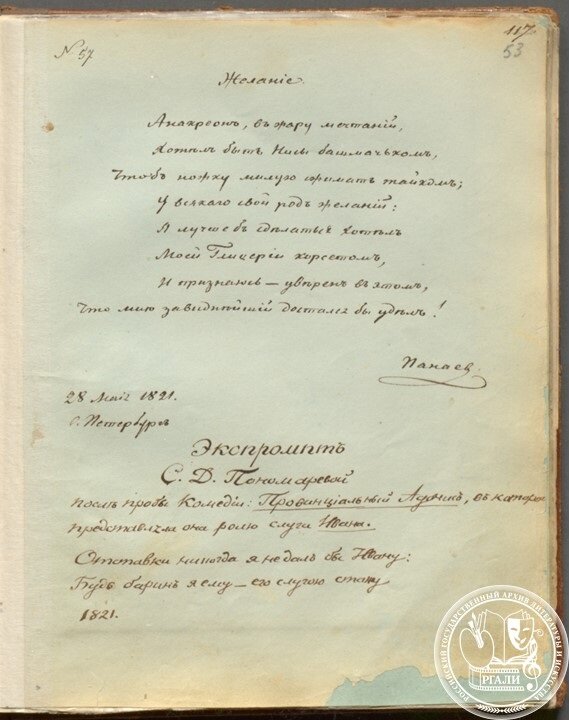 N 57
117.
53
Желаніе.
Анакреонъ, въ жару мечтаній,
Хотѣлъ быть Нисы башмачькомъ,
Чтобъ ножку милую сжимать тайкомъ;
У всякаго свой родъ желаній:
Я лучше бъ сдѣлаться хотѣлъ
Моей Гликеріи корсетомъ,
И признаюсь — увѣренъ въ этомъ,
Что мнѣ завиднѣйшій достался бы удѣлъ!
Панаев.
28 Маія 1821.
С. Петербургъ
Экспромптъ
С. Д. Пономаревой
послѣ пробы Комедіи: Провинціальный Адонисъ, въ которой
представляла она ролю слуги Ивана.
Отставки никогда я не далъ бы Ивану:
Будь баринъ я ему — его слугою стану
1821.
РОССИЙСКИЙ ГОСУДАРСТВЕННЫЙ АРХИВ ЛИТЕРАТУРЫ И ИСКУССТВА
РГАЛИ